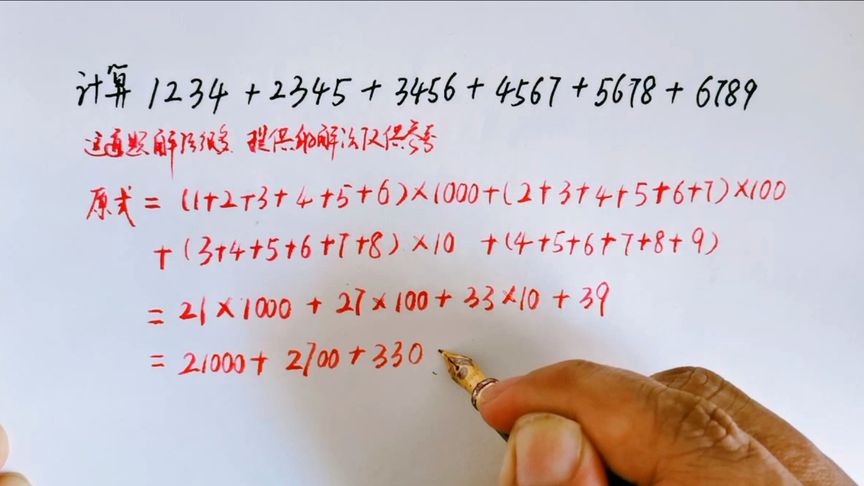 计算 1234 + 2345 + 3456 + 4567 + 5678 + 6789
这道题解法很多 提供的解法仅供参考
原式 = (1+2+3+4+5+6)×1000+(2+3+4+5+6+7)×100
+(3+4+5+6+7+8)×10 +(4+5+6+7+8+9)
= 21×1000 + 27×100 + 33×10 + 39
= 21000 + 2700 + 330